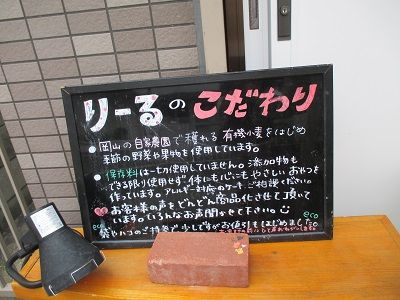 りーるのこだわり
岡山の自家農園で穫れる有機小麦をはじめ
季節の野菜や果物を使用しています。
保存料は一切使用していません。添加物も
できる限り使用せず体にも心にもやさしいおやつを
作っています。アレルギー対応のケーキご相談ください。
お客様の声をどんどん商品化させて頂いて
います。いろんなお声聞かせて下さい。
eco
eco
袋やハコのご持参で少しですがお値引はじめました